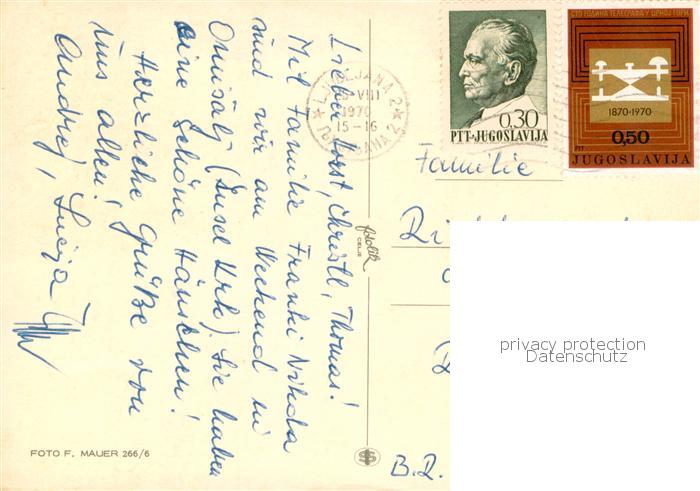 Lieber Horst, Christl, Thomas!
Mit Familie Franki
sind wir am Weekend in
Omišalj (Insel Krk). Sie haben
eine schöne Häuschen!
Herzliche Grüße von
uns allen!
Andrej, Lucija
FOTO F. MAUER 266/6
fotolik
CELJE
LJUBLJANA 2
VIII
1970
15-16
0.30
PTT-JUGOSLAVIJA
СТО ГОДИНА ТЕЛЕГРАФА У ЦРНОЈ ГОРИ
1870-1970
0,50
PTT
JUGOSLAVIJA
Familie
B.R.
privacy protection
Datenschutz